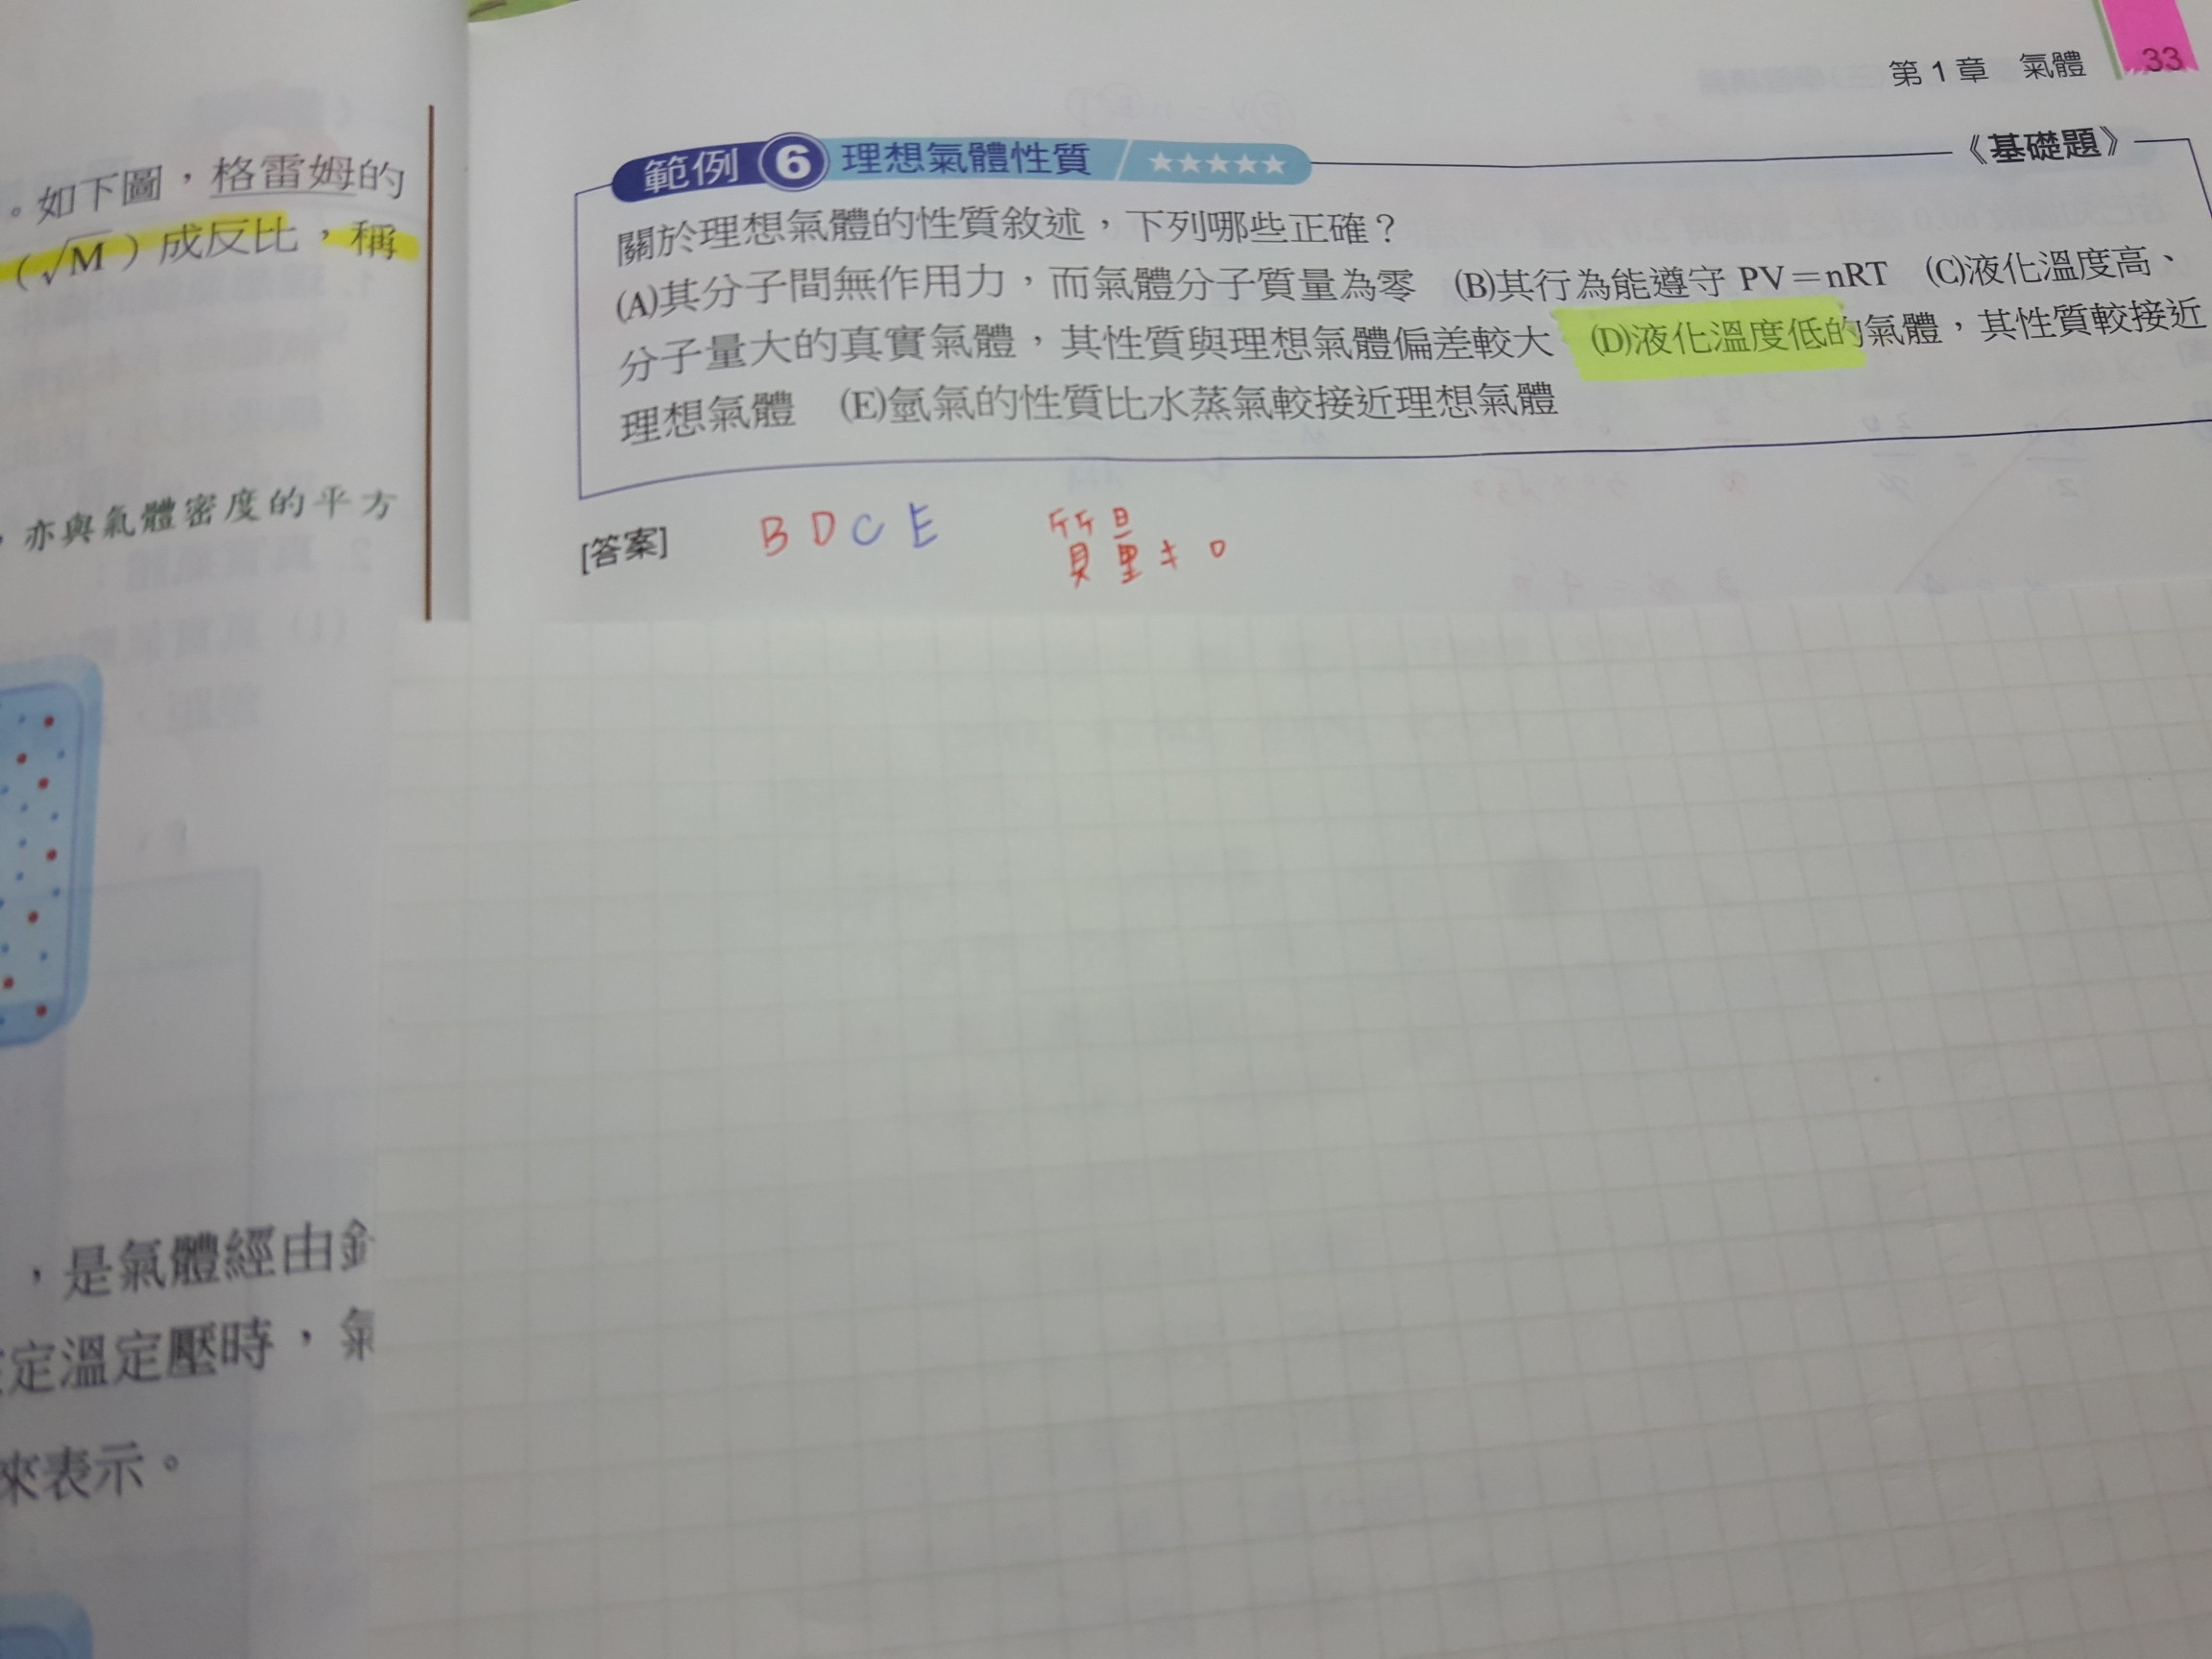 。如下圖，格雷姆的
（√M）成反比，稱
，亦與氣體密度的平方
，是氣體經由針
定溫定壓時，氣
來表示。
第1章 氣體 33
範例 6 理想氣體性質 / ★★★★★ 《基礎題》
關於理想氣體的性質敘述，下列哪些正確？
(A)其分子間無作用力，而氣體分子質量為零 (B)其行為能遵守 PV＝nRT (C)液化溫度高、
分子量大的真實氣體，其性質與理想氣體偏差較大 (D)液化溫度低的氣體，其性質較接近
理想氣體 (E)氫氣的性質比水蒸氣較接近理想氣體
[答案] B D C E 質量≠0